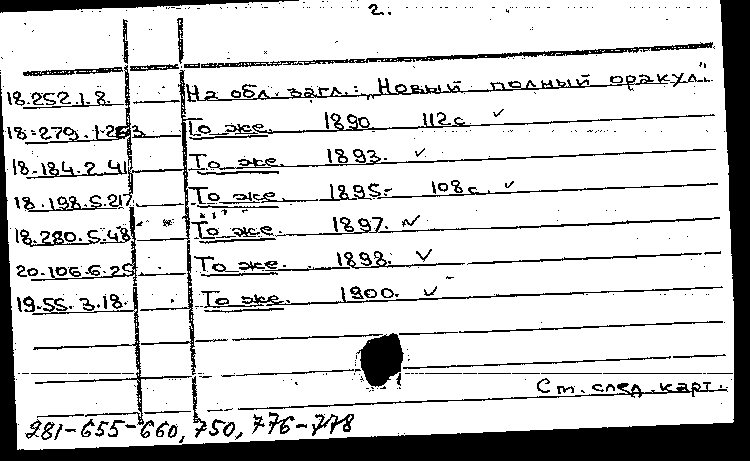 2.
18.252.1.8. На обл. загл.: „Новый полный оракул".
18.279.1.263 То же. 1890. 112 с. ✓
18.184.2.41 То же. 1893. ✓
18.198.5.217 То же. 1895. 108 с. ✓
18.280.5.48 То же. 1897. ✓
20.106.6.25 То же. 1898. ✓
19.55.3.18. То же. 1900. ✓
См. след. карт.
281-655-660, 750, 776-778